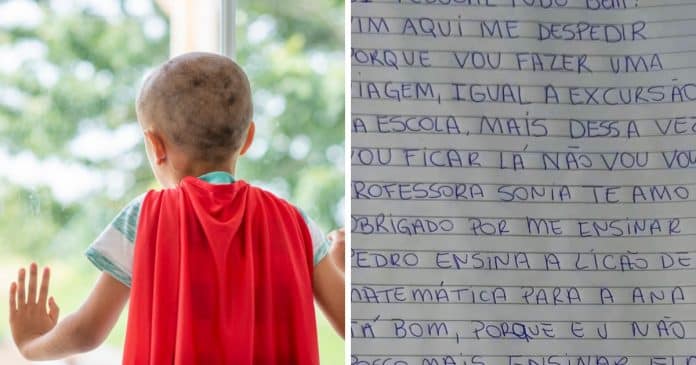 PESSOAL TUDO BEM?
IM AQUI ME DESPEDIR
PORQUE VOU FAZER UMA
IAGEM, IGUAL A EXCURSÃO
A ESCOLA, MAIS DESSA VEZ
OU FICAR LÁ NÃO VOU VOL
PROFESSORA SONIA TE AMO
OBRIGADO POR ME ENSINAR
PEDRO ENSINA A LICÃO DE
MATEMÁTICA PARA A ANA
TÁ BOM, PORQUE EU NÃO
POSSO MAIS ENSINAR ELA